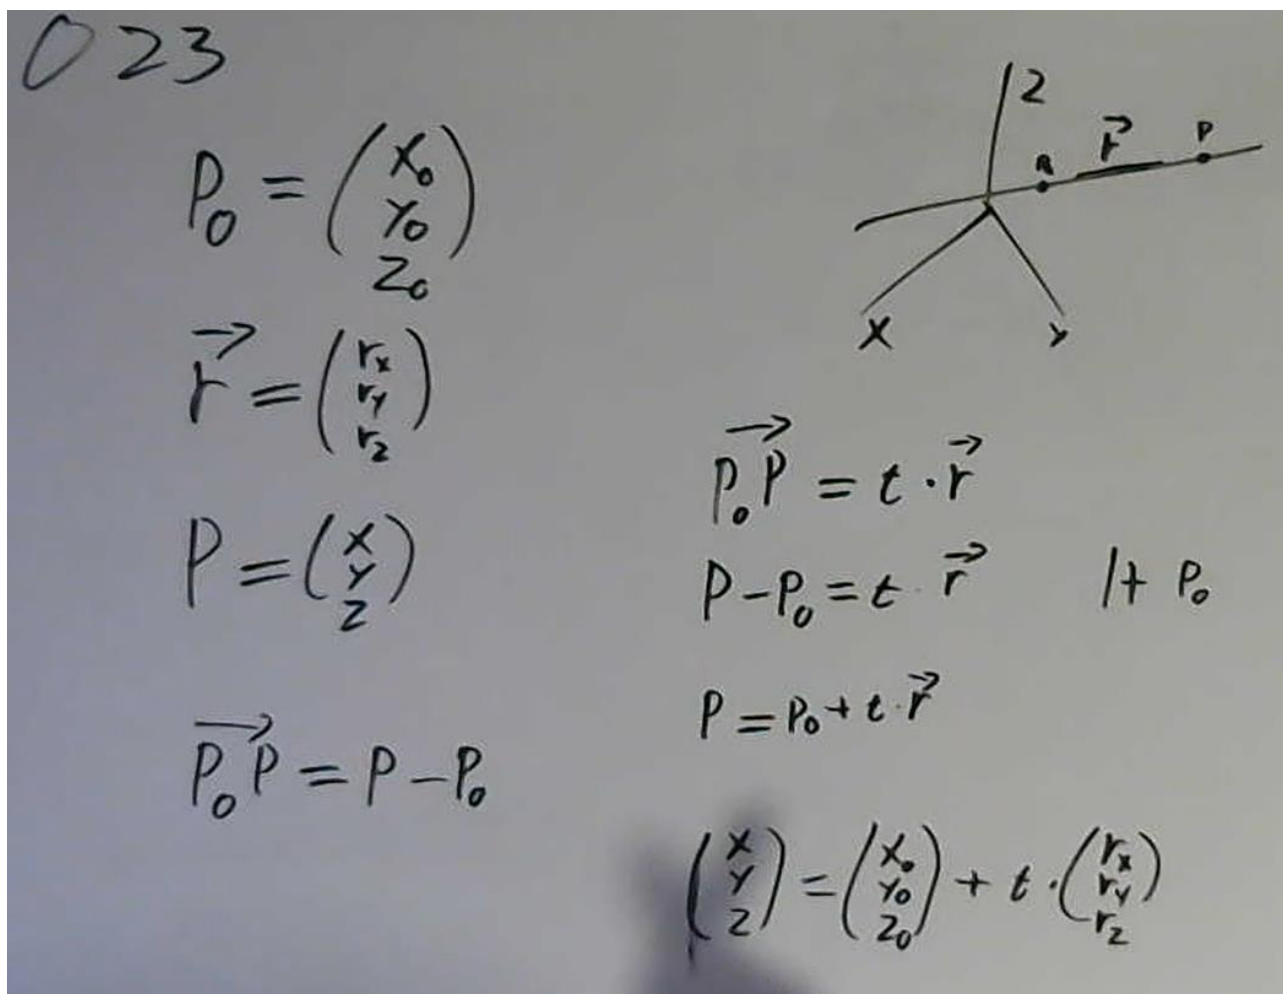 023
P₀ = (x₀ y₀ z₀)
r⃗ = (rₓ r_y r_z)
P = (x y z)
P₀P⃗ = P - P₀
z
P₀ r⃗ P
x y
P₀P⃗ = t · r⃗
P - P₀ = t · r⃗ |+ P₀
P = P₀ + t · r⃗
(x y z) = (x₀ y₀ z₀) + t · (rₓ r_y r_z)